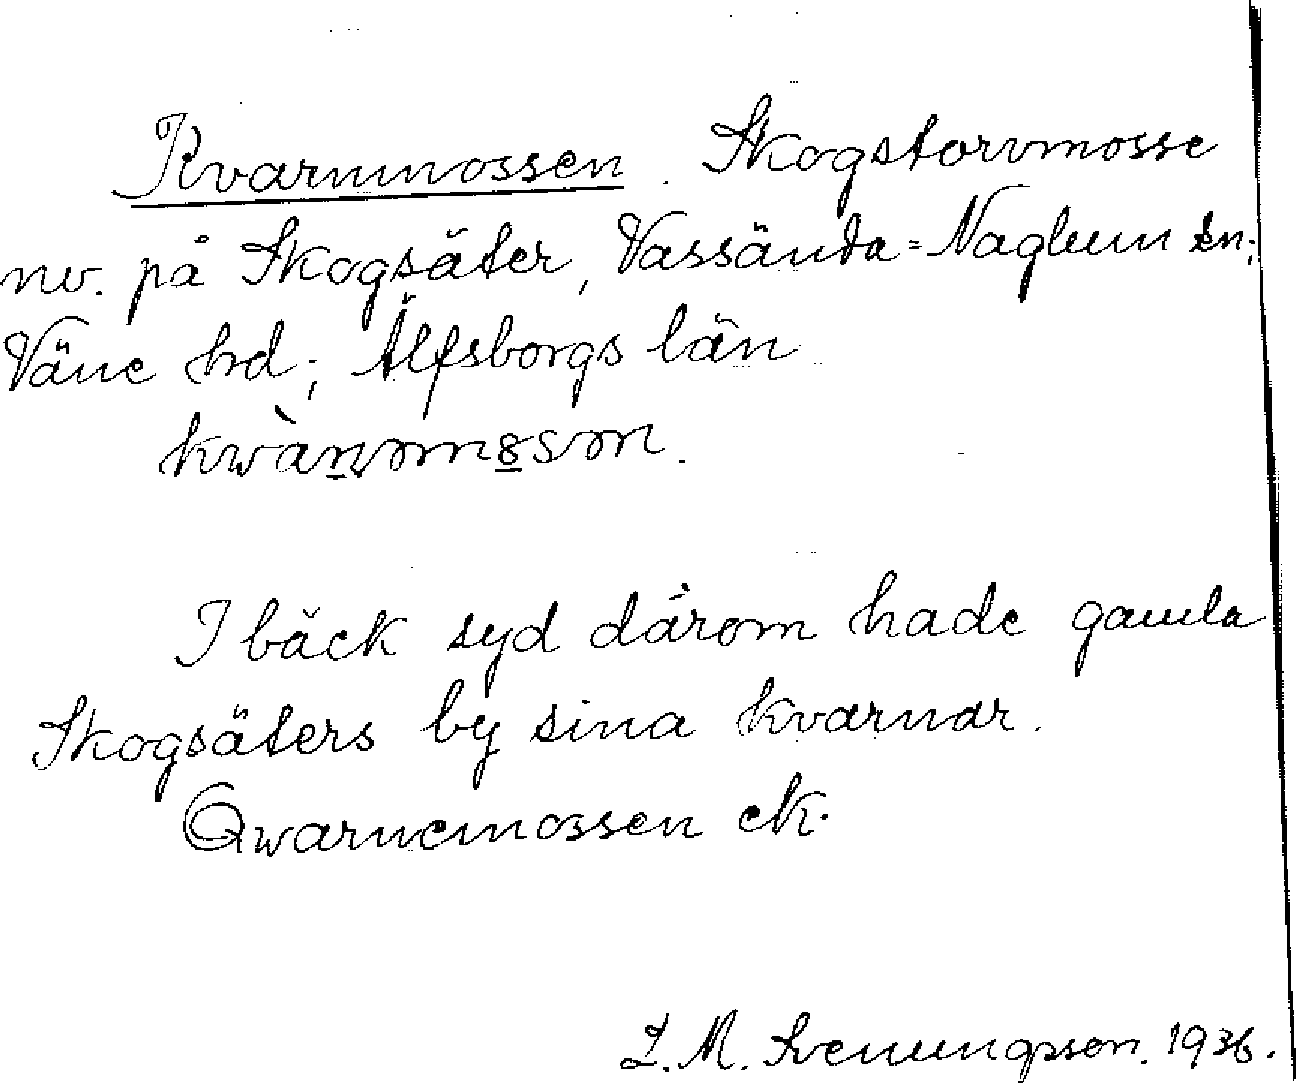 Kvarnmossen. Skogstorvmosse
nv. på Skogsäter, Vassända=Naglum sn;
Väne hd; Älfsborgs län
I bäck syd därom hade gamla
Skogsäters by sina kvarnar.
Qwarnemossen ek.
L. M. Svenungsson. 1936.